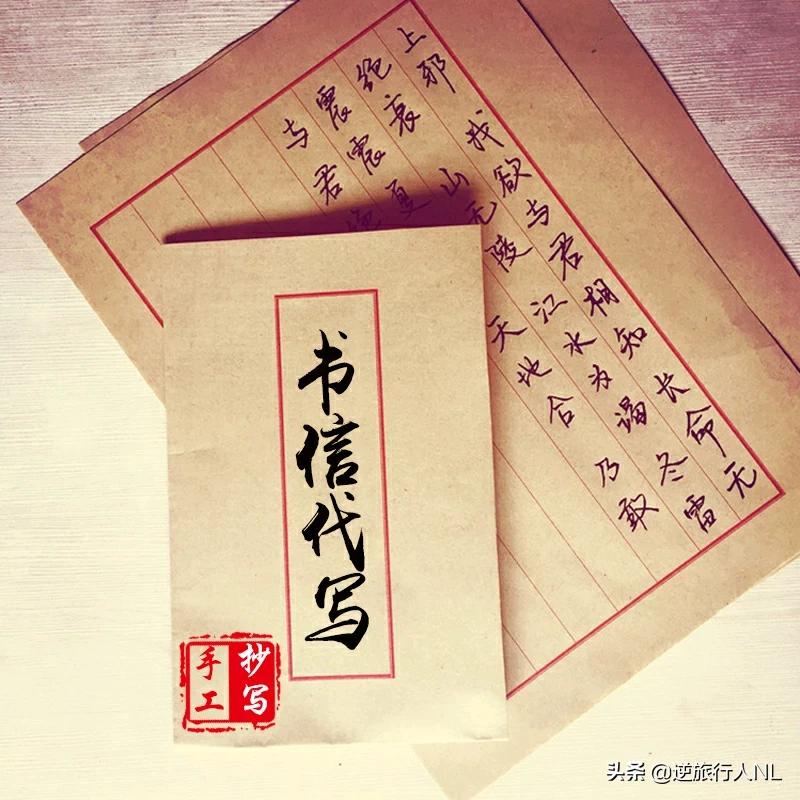 上邪 我欲与君相知 长命无
绝衰 山无陵 江水为竭 冬雷
震震夏 天地合 乃敢
与君绝
书信代写
手工
抄写
头条 @逆旅行人NL